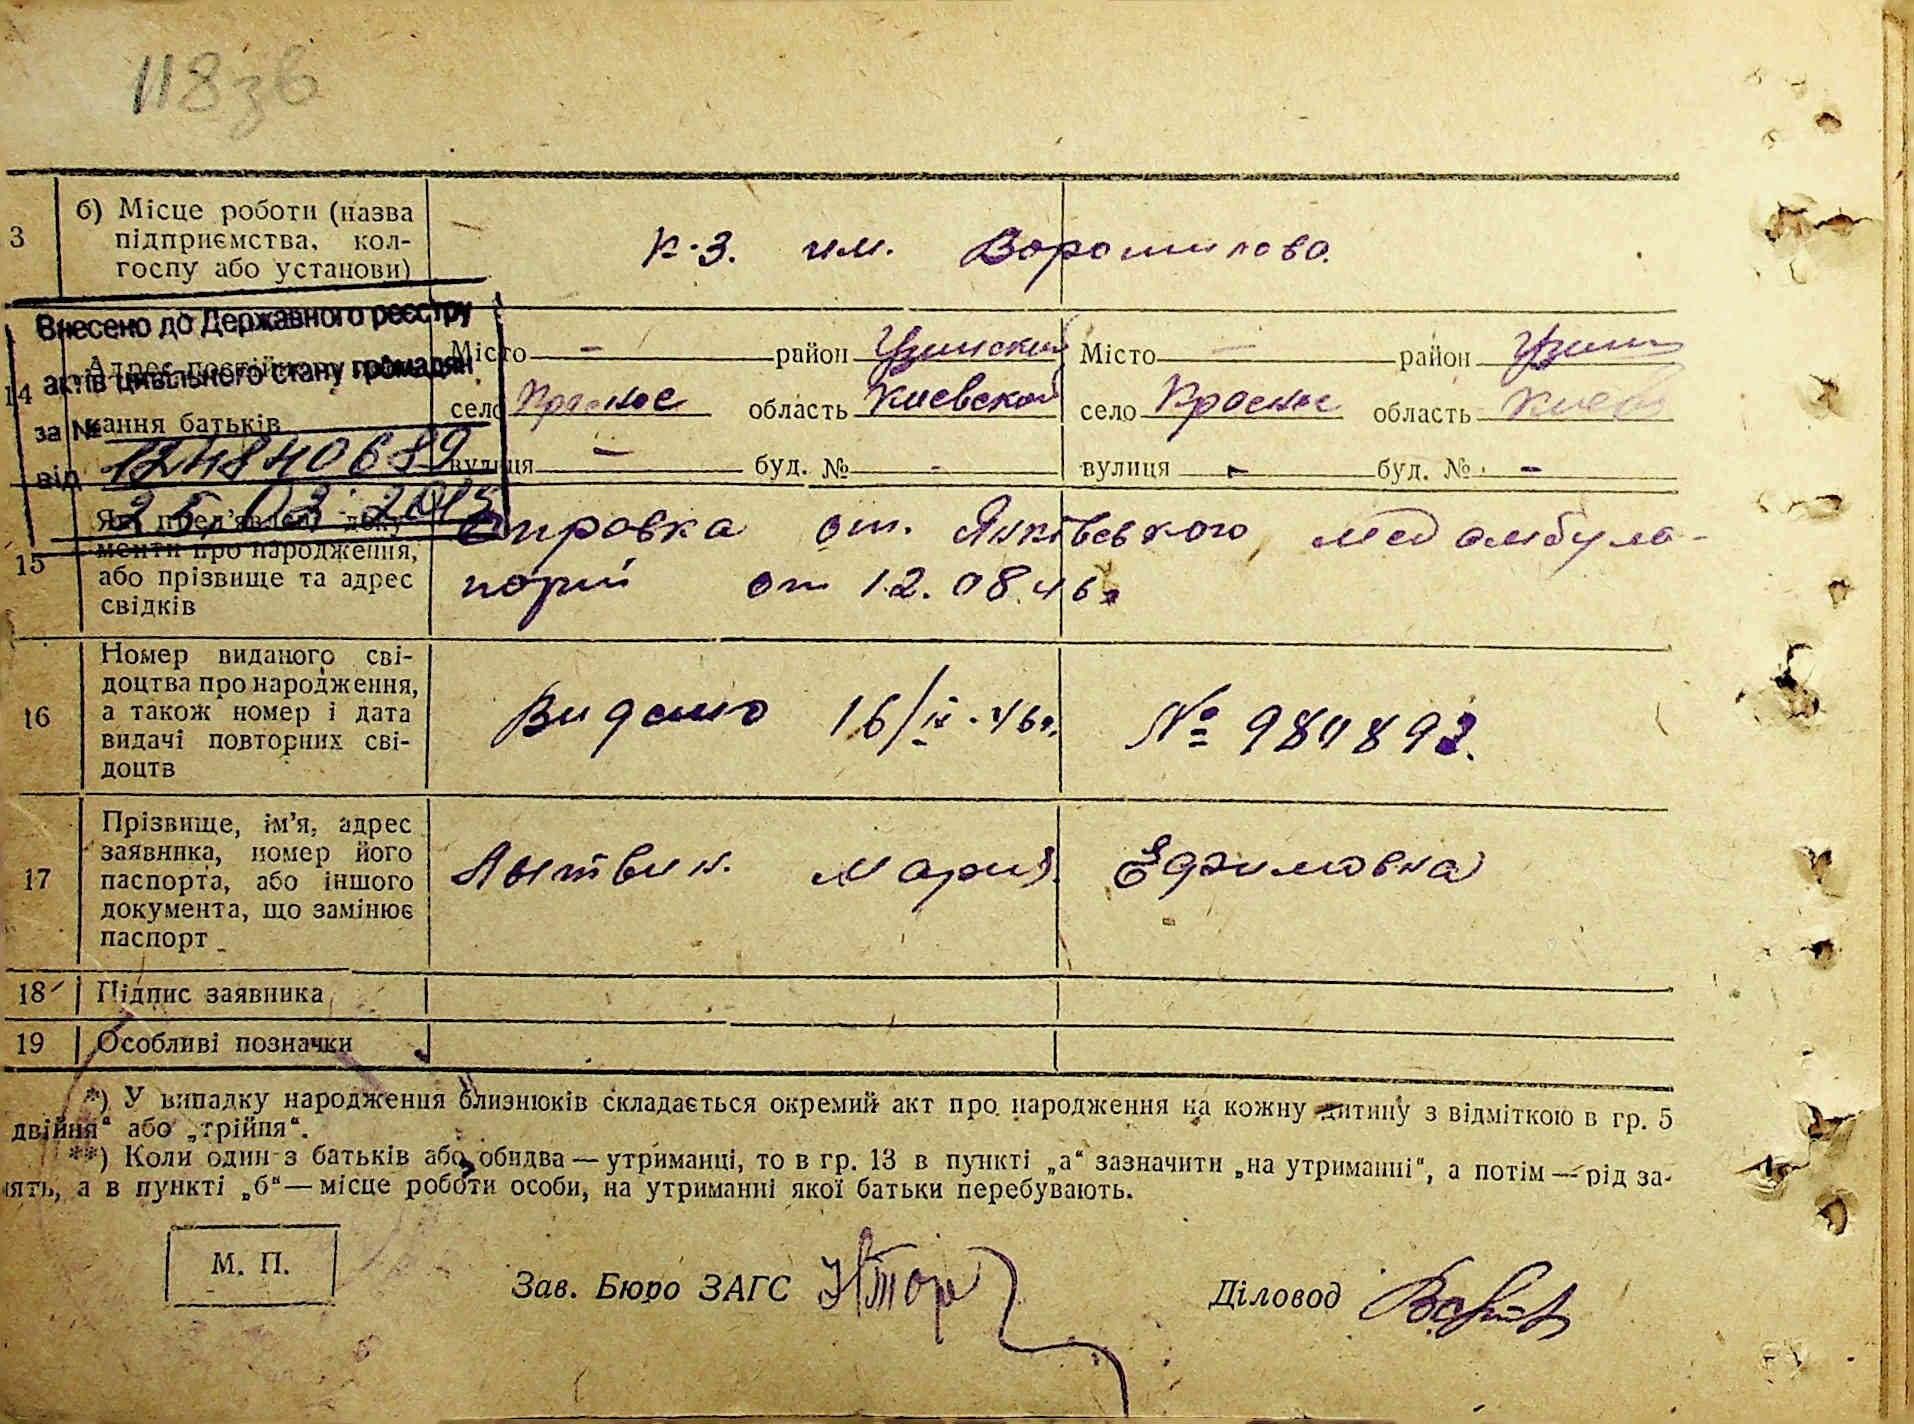 118зв
3 б) Місце роботи (назва
підприємства, кол-
госпу або установи)
к-з. им. Ворошилова.
Внесено до Державного реєстру
актів цивільного стану громадян
за №
124840689
від
25.03.2013
14 Адрес постійного
кання батьків
Місто — район Узинский Місто — район Узин
село Красное область Киевской село Красное область Киев
вулиця — буд. № - вулиця - буд. № -
15 Які пред'явлені доку-
менти про народження,
або прізвище та адрес
свідків
Справка от. Янківського медамбула-
торий от 12.08.46г
16 Номер виданого сві-
доцтва про народження,
а також номер і дата
видачі повторних сві-
доцтв
Видано 16/IX-46г. № 981893.
17 Прізвище, ім'я, адрес
заявника, номер його
паспорта, або іншого
документа, що замінює
паспорт
Лытвин. Мария Ефимовна
18 Підпис заявника
19 Особливі позначки
*) У випадку народження близнюків складається окремий акт про народження на кожну дитину з відміткою в гр. 5
двійня“ або „трійня“.
**) Коли один з батьків або обидва — утриманці, то в гр. 13 в пункті „а“ зазначити „на утриманні“, а потім — рід за-
нять, а в пункті „б“ — місце роботи особи, на утриманні якої батьки перебувають.
М. П.
Зав. Бюро ЗАГС
Діловод